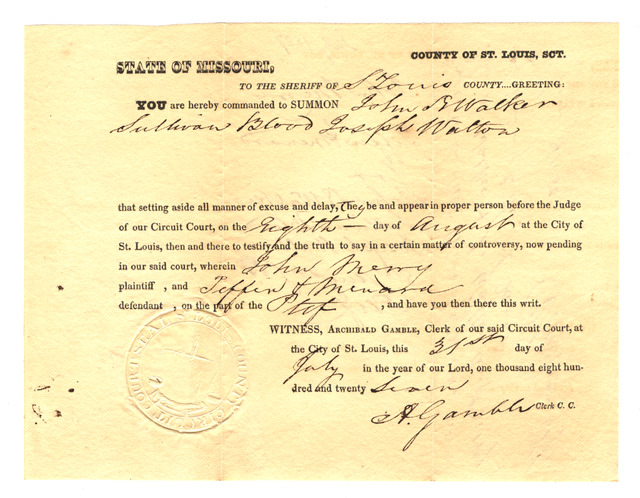 COUNTY OF ST. LOUIS, SCT.
STATE OF MISSOURI,
TO THE SHERIFF OF St Louis COUNTY....GREETING:
YOU are hereby commanded to SUMMON John B Walker
Sullivan Blood Joseph Walton
that setting aside all manner of excuse and delay, they be and appear in proper person before the Judge
of our Circuit Court, on the Eighth — day of August at the City of
St. Louis, then and there to testify and the truth to say in a certain matter of controversy, now pending
in our said court, wherein John Merry
plaintiff , and Tiffin & Menard
defendant , on the part of the Pltf , and have you then there this writ.
WITNESS, ARCHIBALD GAMBLE, Clerk of our said Circuit Court, at
the City of St. Louis, this 31st day of
July in the year of our Lord, one thousand eight hun-
dred and twenty Seven
A. Gamble Clerk C. C.